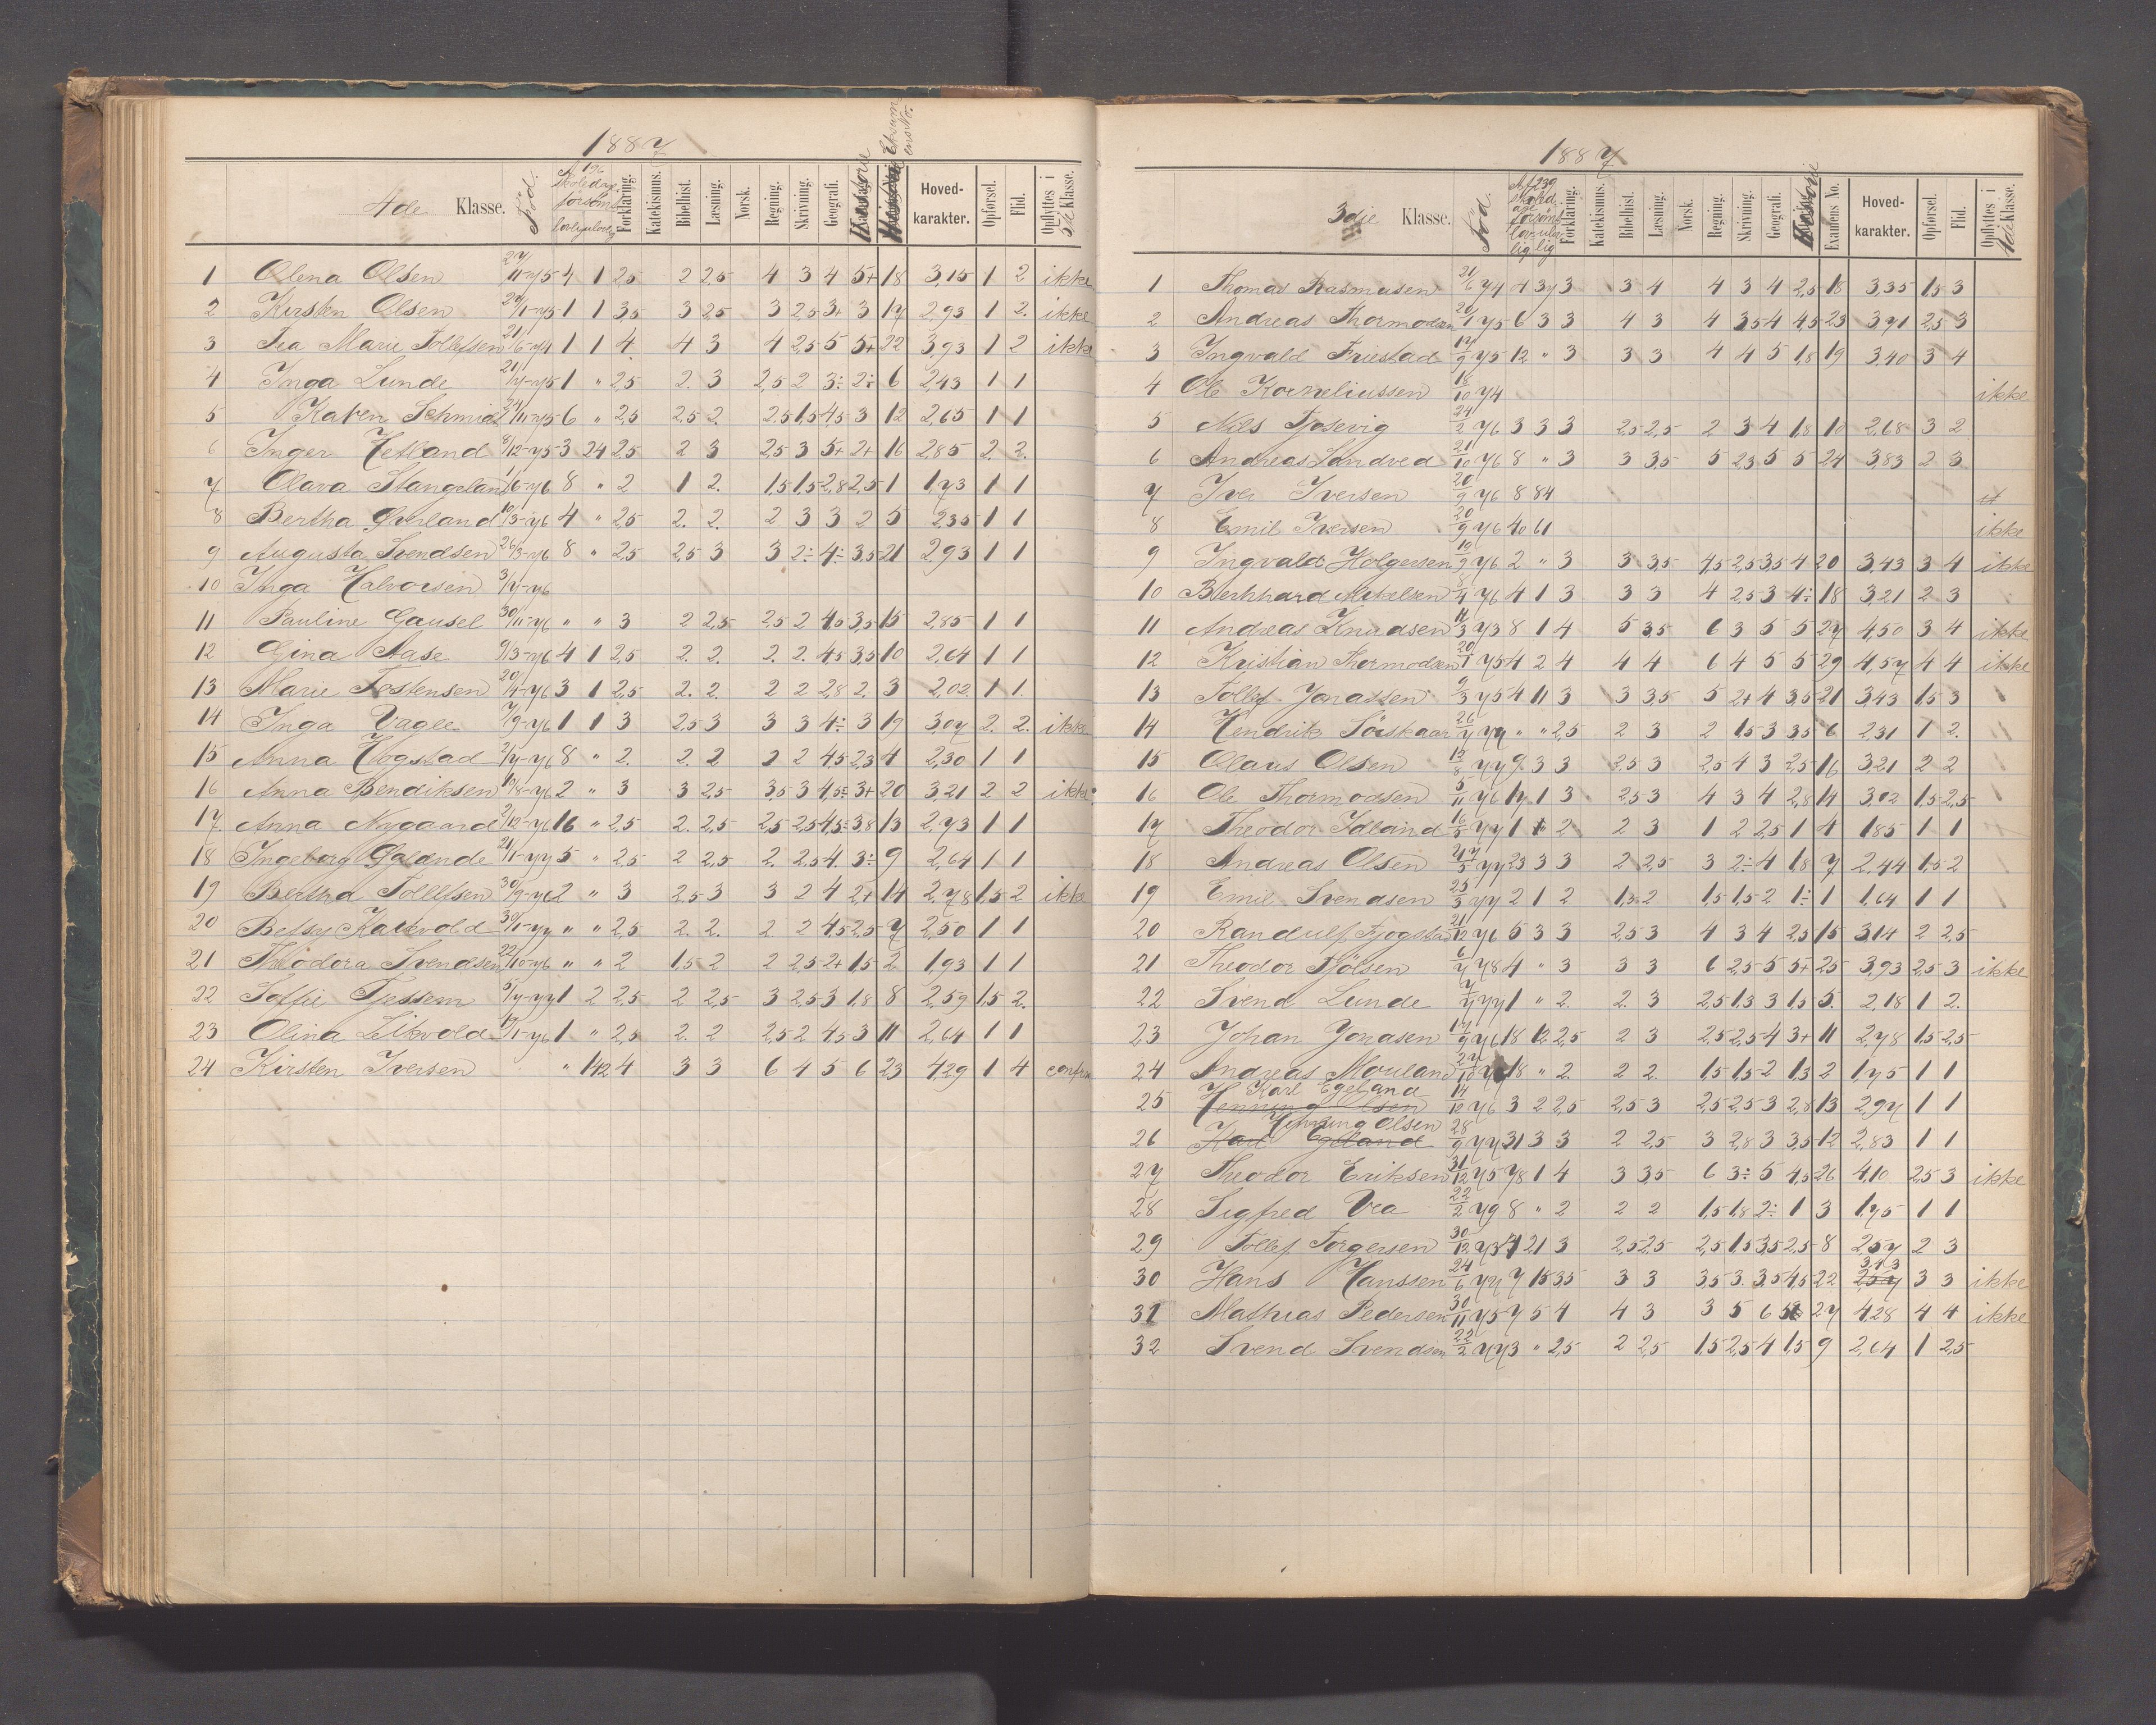 1887
4de Klasse. Föd. Forklaring. Katekismus. Bibelhist. Læsning. Norsk. Regning. Skrivning. Geografi. Historie Hoved-karakter. Opførsel. Flid. Opflyttes i 5te Klasse.
1 Olena Olsen 27/11-75 4 1 2,5 2 2,5 4 3 4 5+ 18 3,15 1 2 ikke
2 Kirsten Olsen 29/1-75 1 1 3,5 3 2,5 3 2,5 3+ 3 17 2,93 1 2. ikke
3 Marie Tollefsen 21/6-74 1 1 4 4 3 4 2,5 5 5+ 22 3,93 1 2 ikke
4 Inga Lunde 21/7-75 1 " 2,5 2. 3 2,5 2 3÷ 2÷ 6 2,43 1 1
5 Karen Schmidt 24/11-75 6 " 2,5 2,5 2. 2,5 1,5 4,5 3 12 2,65 1 1
6 Inger Hetland 8/12-75 3 24 2,5 2 3 2,5 3 5+ 2+ 16 2,85 2. 2.
7 Olava Stangeland 1/6-76 8 " 2 1 2. 1,5 1,5 2,8 2,5 1 1,73 1 1
8 Bertha Qverland 10/3-76 4 " 2,5 2. 2. 2 3 3 2 5 2,35 1 1
9 Augusta Svendsen 26/3-76 8 " 2,5 2,5 3 3 2÷ 4÷ 3,5 21 2,93 1 1
10 Inga Halvorsen 3/7-76
11 Pauline Gausel 30/11-76 " " 3 2 2,5 2,5 2 4,5 3,5 15 2,85 1 1
12 Gina Aase 9/3-76 4 1 2,5 2. 2. 2. 2. 4,5 3,5 10 2,64 1 1
13 Marie Testensen 20/4-76 3 1 2,5 2. 2. 2 2 2,8 2. 3 2,02 1 1.
14 Inga Vagle 7/9-76 1 1 3 2,5 3 3 3 4÷ 3 19 3,07 2. 2. ikke
15 Anna Hogstad 2/7-76 8 " 2. 2. 2 2 2 4,5 2,3 4 2,30 1 1
16 Anna Bendiksen 10/8-76 2 " 3 3 2,5 3,5 3 4,5÷ 3+ 20 3,21 2 2 ikke
17. Anna Nygaard 2/12-76 16 " 2,5 2. 2,5 2,5 2,5 4,5÷ 3,8 13 2,73 1 1
18 Ingeborg Galande 21/1-77 5 " 2,5 2 2,5 2. 2,5 4. 3÷ 9 2,64 1 1
19 Bertha Tollefsen 30/9-76 2 " 3 2,5 3 3 2 4 2+ 14 2,78 1,5 2 ikke
20 Betsy Kalvold 30/1-77 " " 2,5 2. 2. 2 2 4,5 2,5 7 2,50 1 1
21 Theodora Svendsen 22/10-76 " " 2 1,5 2 2 2,5 2+ 1,5 2 1,93 1 1
22 Soffie Tjessem 5/7-77 1 2 2,5 2 2,5 3 2,5 3 1,8 8 2,59 1,5 2.
23 Olina Leikvold 19/1-76 1 " 2,5 2. 2 2,5 2 4,5 3 11 2,64 1 1
24 Kirsten Iversen " 142 4 3 3 6 4 5 6 23 4,29 1 4
1887
3die Klasse. Föd. Forklaring. Katekismus. Bibelhist. Læsning. Norsk. Regning. Skrivning. Geografi. Historie Examens No. Hoved-karakter. Opførsel. Flid. Opflyttes i 4de Klasse.
1 Thomas Rasmussen 21/6 74 4 37 3 3 4 4 3 4 2,5 18 3,35 1,5 3
2 Andreas Thormodsen 20/1 75 6 3 3 4 3 4 3,5 4 4,5 23 3,71 2,5 3
3 Ingvald Friestad 14/9 75 12 " 3 3 3 4 4 5 1,8 19 3,40 3 4
4 Ole Korneliussen 18/10 74 ikke
5 Nils Fjosevig 24/2 76 3 3 3 2,5 2,5 2 3 4 1,8 10 2,68 3 2
6 Andreas Sandved 21/10 76 8 " 3 3 3,5 5 2,3 5 5 24 3,83 2 3
7 Iver Iversen 20/9 76 8 84
8 Emil Iversen 20/9 76 40 61 ikke
9 Ingvald Holgersen 10/9 76 2 " 3 3 3,5 4,5 2,5 3,5 4 20 3,43 3 4 ikke
10 Bernhard Mikelsen 8/4 76 4 1 3 3 3 4 2,5 3 4÷ 18 3,21 2 3
11 Andreas Knudsen 11/3 73 8 1 4 5 3,5 6 3 5 5 27 4,50 3 4 ikke
12 Kristian Thormodsen 20/1 75 4 2 4 4 4 6 4 5 5 29 4,57 4 4 ikke
13 Tollef Jonassen 9/3 75 4 11 3 3 3,5 5 2+ 4 3,5 21 3,43 1,5 3
14 Hendrik Sörskaar 26/7 77 " " 2,5 2 3 2 1,5 3 3,5 6 2,31 1 2.
15 Olaus Olsen 12/8 77 9 3 3 2,5 3 2,5 4 3 2,5 16 3,21 2 2
16 Ole Thormodsen 5/11 76 17 1 3 2,5 3 4 3 4 2,8 14 3,02 1,5 2,5
17 Theodor Idland 16/5 77 1 " 2 2 3 1 2 2,5 1 4 1,85 1 1
18 Andreas Olsen 27/5 77 23 3 3 2 2,5 3 2÷ 4 1,8 7 2,44 1,5 2
19 Emil Svendsen 25/3 77 2 1 2 1,3 2 1,5 1,5 2 1÷ 1 1,64 1 1
20 Randulf Fjogstad 21/12 76 5 3 3 2,5 3 4 3 4 2,5 15 3,14 2 2,5
21 Theodor Fjölsen 6/7 78 4 " 3 3 3 6 2,5 5 5+ 25 3,93 2,5 3 ikke
22 Svend Lunde 7/7 77 1 " 2. 2. 3 2,5 1,3 3 1,5 5. 2,18 1 2.
23 Johan Jonasen 14/9 76 18 12 2,5 2 3 2,5 2,5 4 3+ 11 2,78 1,5 2,5
24 Andreas Mouland 24/10 18 " 2. 2 2. 1,5 1,5 2 1,3 2 1,75 1 1
Karl Egeland
25 Henning Olsen 14/12 76 3 2 2,5 2,5 3 2,5 2,5 3 2,8 13 2,97 1 1
Henning Olsen
26 Karl Egeland 28/9 77 31 3 3 2 2,5 3 2,8 3 3,5 12 2,83 1 1
27 Theodor Eriksen 31/12 75 78 1 4 3 3,5 6 3÷ 5 4,5 26 4,10 2,5 3 ikke
28 Sigfred Vea 22/2 79 8 " 2 2 2 1,5 1,8 2÷ 1 3 1,75 1 1
29 Tollef Torgersen 30/12 21 3 2,5 2,5 2,5 1,5 3,5 2,5 8 2,57 2 3
30 Hans Hanssen 24/6 7 15 3,5 3 3 3,5 3 3,5 4,5 22 2,57 3,43 3 3 ikke
31 Mathias Pedersen 30/11 75 7 5 4 4 3 3 5 6 27 4,28 4 4 ikke
32 Svend Svendsen 22/2 77 3 " 2,5 2 2,5 1,5 2,5 4 1,5 9 2,64 1 2,5